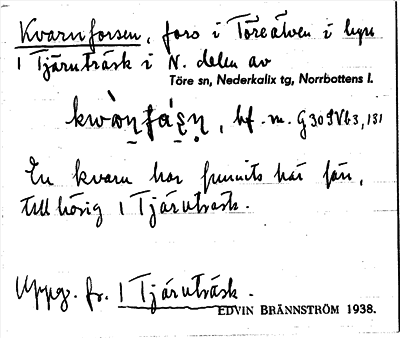 Kvarnforsen, fors i Töreälven i byn
1 Tjärnträsk i N. delen av
Töre sn, Nederkalix tg, Norrbottens l.
bf. m.
En kvarn har funnits här förr,
tillhörig 1 Tjärnträsk.
Uppg. fr. 1 Tjärnträsk.
EDVIN BRÄNNSTRÖM 1938.